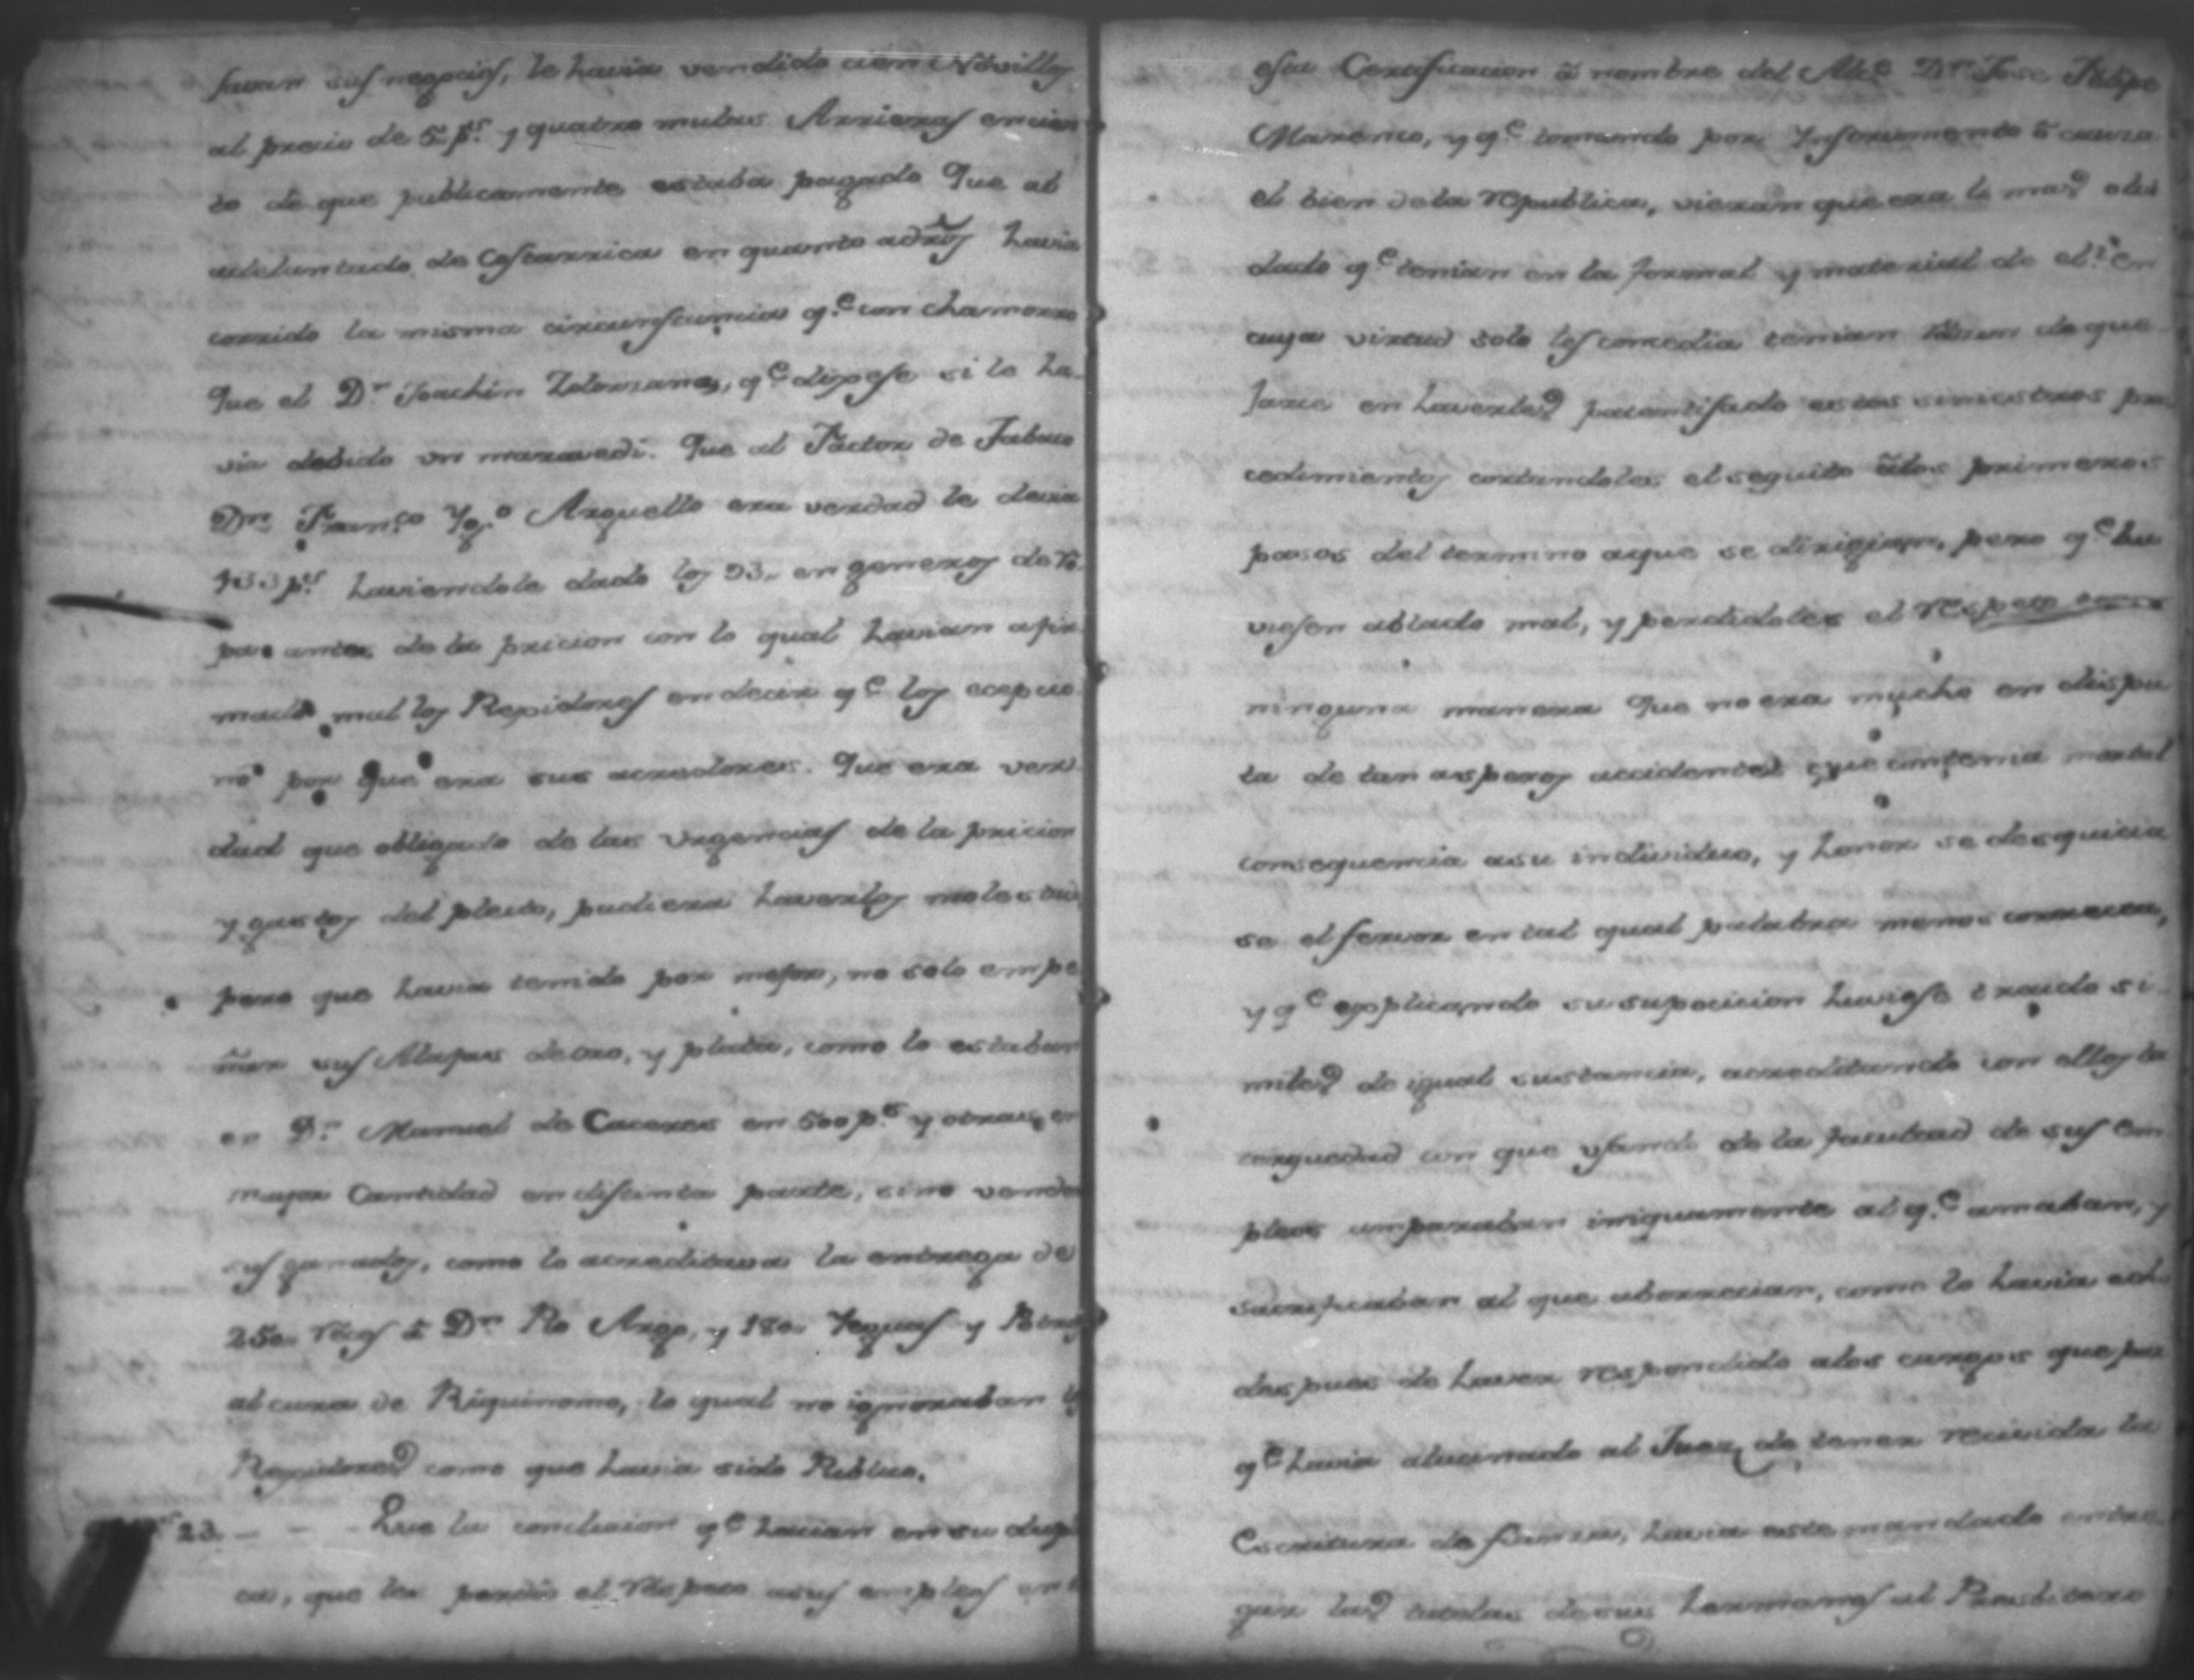 savan sus negocios, le havia vendido cien Novillos
al precio de 5 ps. y quatro mulas Arrieras en cien
to de que publicamente estaba pagado Que al
adelantado de Costarrica en quanto a havia
corrido la misma circunstancia q.e con chamorro
Que el Dr Joachin Zolorzano, q.e dixese si le ha
via debido un maravedi. Que al Factor de Tabaco
Dn Franco Ygo Arguello era verdad le devia
133 ps haviendole dado los 93 en generos de Ro
pa antes de la pricion con lo qual havian afir
mado mal los Regidores en decir q.e los ecepcio
nó por que era sus acreedores. Que era ver
dad que obligado de las urgencias de la pricion
y gastos del pleito, pudiera haverlos molestado
pero que havia tenido por mejor, no solo empe
ñar sus Alajas de oro, y plata, como lo estaban
en Dn Manuel de Caceres en 500 ps y otras en
mayor Cantidad en distinta parte, sino vender
sus ganados, como lo acreditava la entrega de
250 Rs a Dn Argo, y 180 Yeguas y Potros
al cura de lo qual no ignoraban los
Regidores como que havia sido Publico.
23. - - - Que la conclucion q.e hacian en su
ca, que les perdió el Respeto a sus empleos en
esta Certificacion á nombre del Alce Dn Jose Felipe
Marenco, y q.e tomando por Ynstrumento ó causa
el bien dela Republica, vieran que era lo mas olbi
dado q.e tenian en la formal y material de el: en
cuya virtud solo les concedia tenian Razon de que
jarse en haverles patentisado estos siniestros pro
cedimientos cortandoles el seguito álos primeros
pasos del termino aque se dirigian, pero q.e hu
viesen ablado mal, y perdidoles el Respeto
ninguna manera Que no era mucho en dispu
ta de tan asperos accidentes mortal
consequencia asu individuo, y honor se desquicia
se el fervor en tal qual palabra menos correcta,
y q.e explicando su suposicion huviese traido si
miles de igual sustancia, acreditando con ellos la
terquedad con que usando de la facultad de sus em
pleos amparaban iniquamente al q.e amaban, y
Sacrificaban al que aborrecian, como lo havia
despues de haver respondido alos cargos que
q.e havia alucinado al Juez de tener recivida la
Escritura de fianza, havia este mandado entre
gar las tutelas de sus hermanos al Presbitero